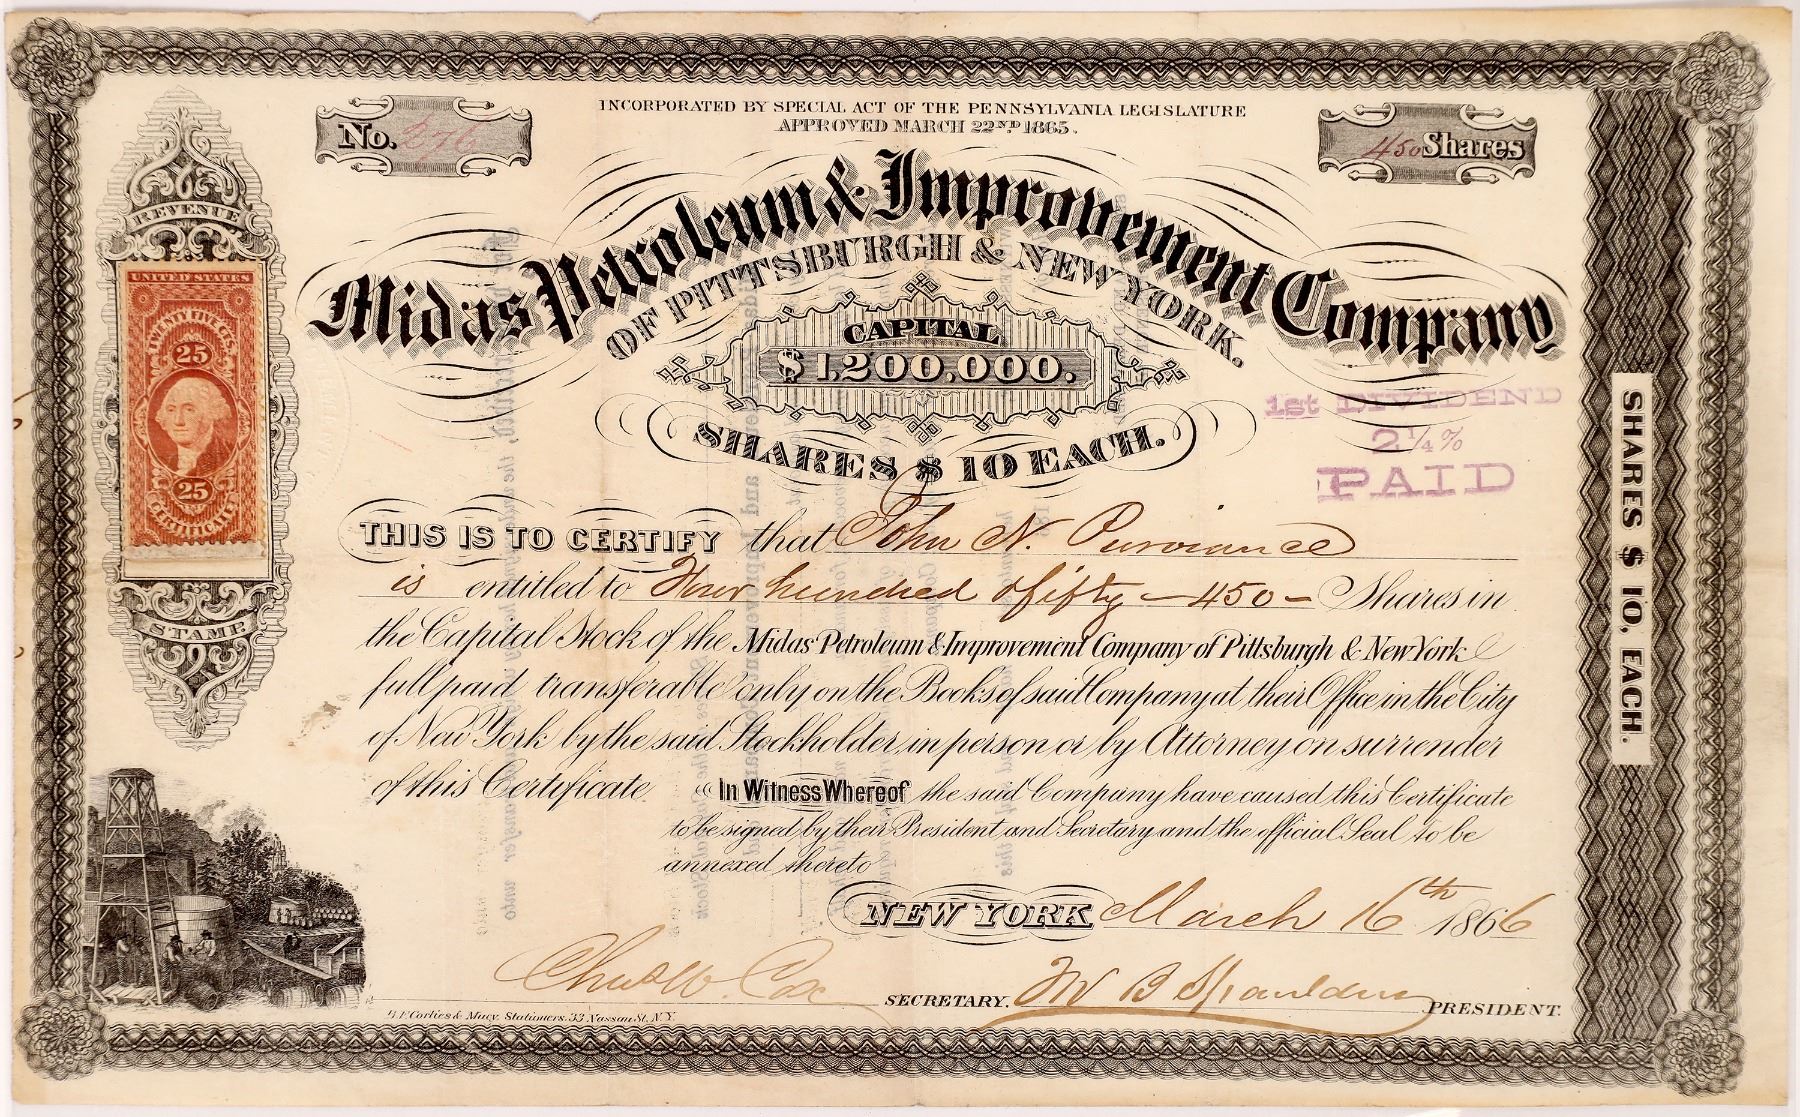 INCORPORATED BY SPECIAL ACT OF THE PENNSYLVANIA LEGISLATURE
APPROVED MARCH 22ND 1865.
No. 276
450 Shares
Midas Petroleum & Improvement Company
OF PITTSBURGH & NEW YORK.
CAPITAL
$1,200,000.
SHARES $10 EACH.
REVENUE
UNITED STATES
TWENTY FIVE CTS.
25
25
CERTIFICATE
STAMP.
1st DIVIDEND
2 1/4 %
PAID
THIS IS TO CERTIFY that John N. Purviance
is entitled to Four hundred & fifty — 450 — Shares in
the Capital Stock of the Midas Petroleum & Improvement Company of Pittsburgh & New York
full paid transferable only on the Books of said Company at their Office in the City
of New York by the said Stockholder, in person or by Attorney on surrender
of this Certificate.
In Witness Whereof the said Company have caused this Certificate
to be signed by their President and Secretary and the official Seal to be
annexed thereto
NEW YORK March 16th 1866
Chas W. Cox SECRETARY. W B Spaulding PRESIDENT.
Corlies & Macy, Stationers, 33 Nassau St. N.Y.
SHARES $10, EACH.